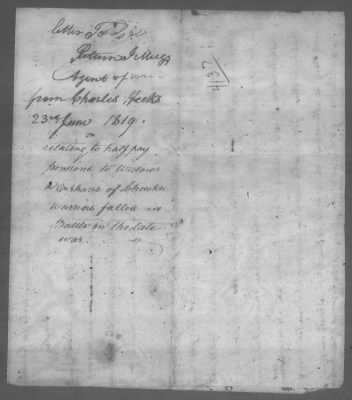 letter To
Return J Meigs
Agent of war
from Charles Hicks
23rd June 1819.
relating to half pay
pensions to Widows
& Orphans of Cherokee
warriors fallen in
Battle in the late
war.
4137